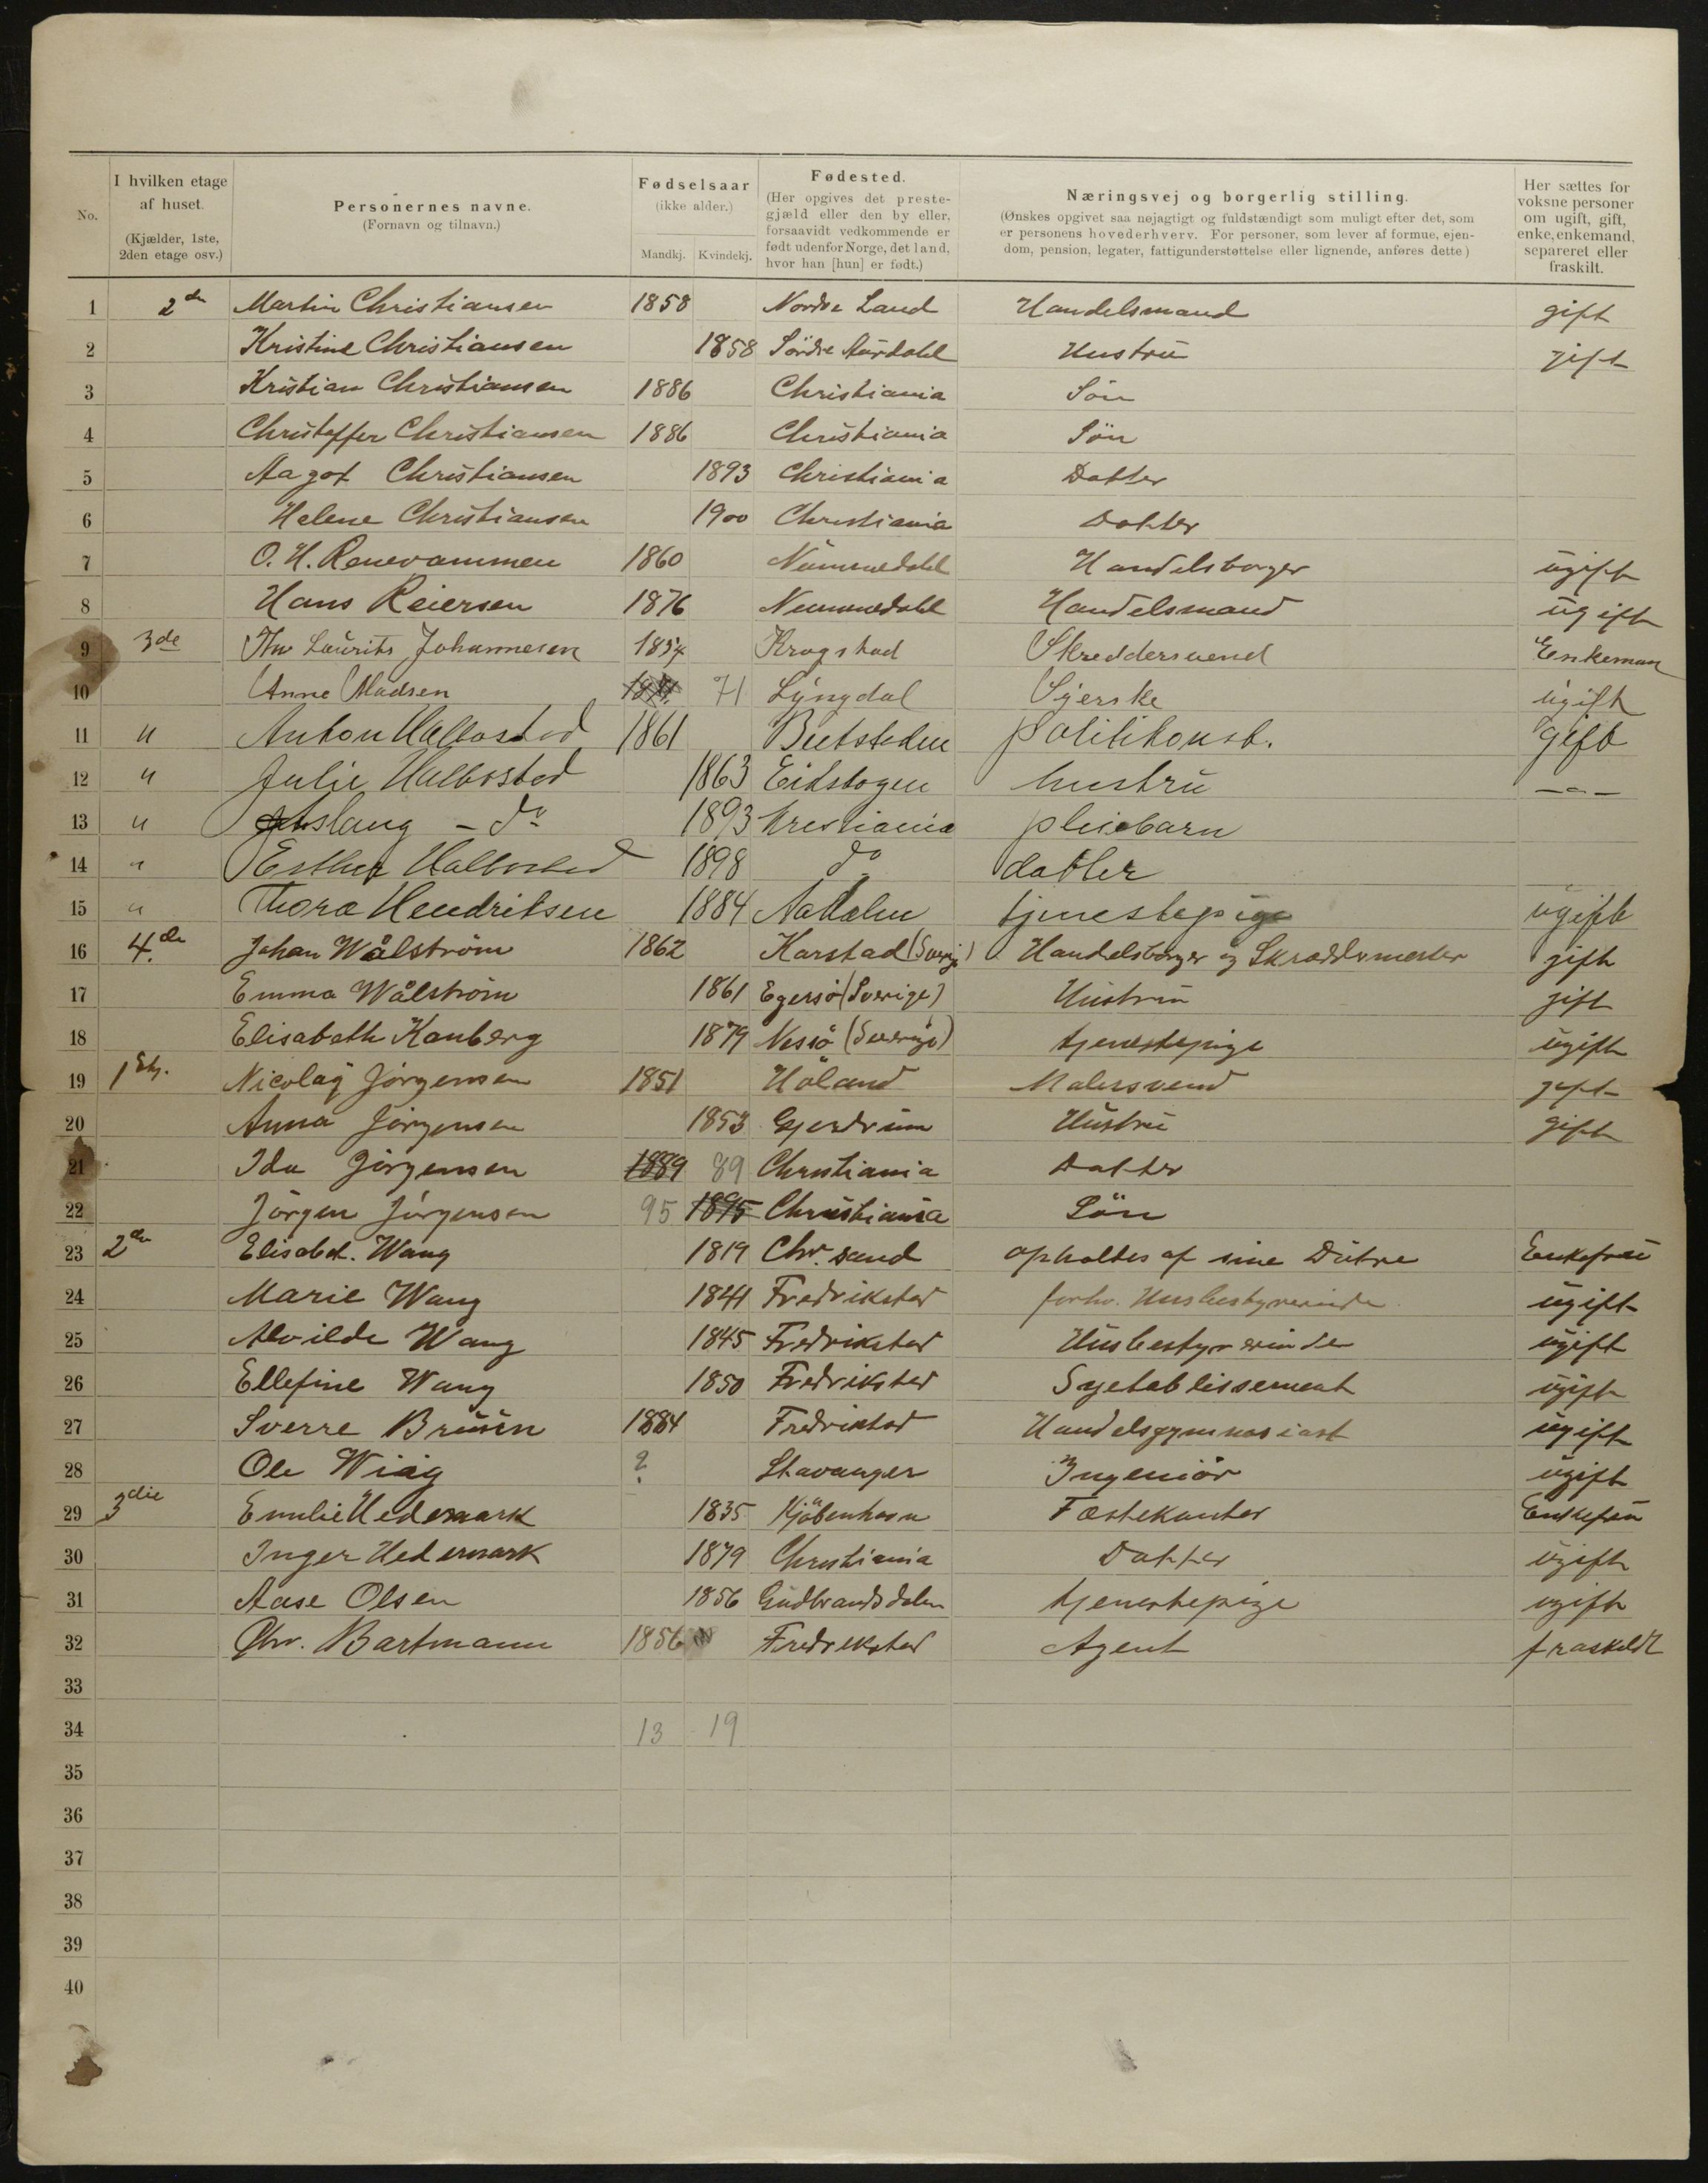 No.
I hvilken etage af huset. (Kjælder, 1ste, 2den etage osv.)
Personernes navne. (Fornavn og tilnavn.)
Fødselsaar (ikke alder.) Mandkj. Kvindekj.
Fødested. (Her opgives det prestegjæld eller den by eller, forsaavidt vedkommende er født udenfor Norge, det land, hvor han [hun] er født.)
Næringsvej og borgerlig stilling. (Ønskes opgivet saa nøjagtigt og fuldstændigt som muligt efter det, som er personens hovederhverv. For personer, som lever af formue, ejendom, pension, legater, fattigunderstøttelse eller lignende, anføres dette)
Her sættes for voksne personer om ugift, gift, enke, enkemand, separeret eller fraskilt.
1 2den Martin Christiansen 1858 Nordre Land Handelsmand gift
2 Kristine Christiansen 1858 Söndre Aurdahl Hustru gift
3 Kristian Christiansen 1886 Christiania Sön
4 Christoffer Christiansen 1886 Christiania Sön
5 Aagot Christiansen 1893 Christiania Datter
6 Helene Christiansen 1900 Christiania Datter
7 O. H. 1860 Nummedahl Handelsborger ugift
8 Hans Reiersen 1876 Nummedahl Handelsmand ugift
9 3de Laurits Johannesen 1854 Krogstad Skreddersvend Enkeman
10 Anne Madsen 71 Lyngdal Syerske ugift
11 " Anton Halbostad 1861 Beitstaden politikonst. gift
12 " Julie Halbostad 1863 Eidskogen hustru -"-
13 " Aslaug - do 1893 Kristiania pleiebarn
14 " Esther Halbostad 1898 do datter
15 " Thora Hendriksen 1884 Aadalen tjenestepige ugift
16 4de Johan Wålström 1862 Karstad (Sverige) Handelsborger og Skræddermester gift
17 Emma Wålström 1861 Egersö (Sverige) Hustru gift
18 Elisabeth Kanberg 1879 Nessö (Sverige) tjenestepige ugift
19 1 Etg. Nicolay Jörgensen 1851 Höland Malersvend gift
20 Anna Jörgensen 1853 Gjerdrum Hustru gift
21 Ida Jörgensen 1889 89 Christiania Datter
22 Jörgen Jörgensen 95 1895 Christiania Sön
23 2den Elisabet. Wang 1819 Chr. sand opholdes af sine Dötre Enkefrue
24 Marie Wang 1841 Fredrikstad forhv. Husbestyrerinde ugift
25 Alvilde Wang 1845 Fredrikstad Husbestyrerinde ugift
26 Ellefine Wang 1850 Fredrikstad Syetablissement ugift
27 Sverre Bruun 1884 Fredrikstad Handelsgymnasiast ugift
28 Ole Wiig ? Stavanger Ingeniör ugift
29 3die Emilie Hedemark 1835 Kjöbenhavn Fæstekontor Enkefru
30 Inger Hedemark 1879 Christiania Datter ugift
31 Aase Olsen 1856 Gudbrandsdalen tjenestepige ugift
32 Chr. Bartmann 1856 Fredrikstad Agent fraskildt
33
34 13 19
35
36
37
38
39
40